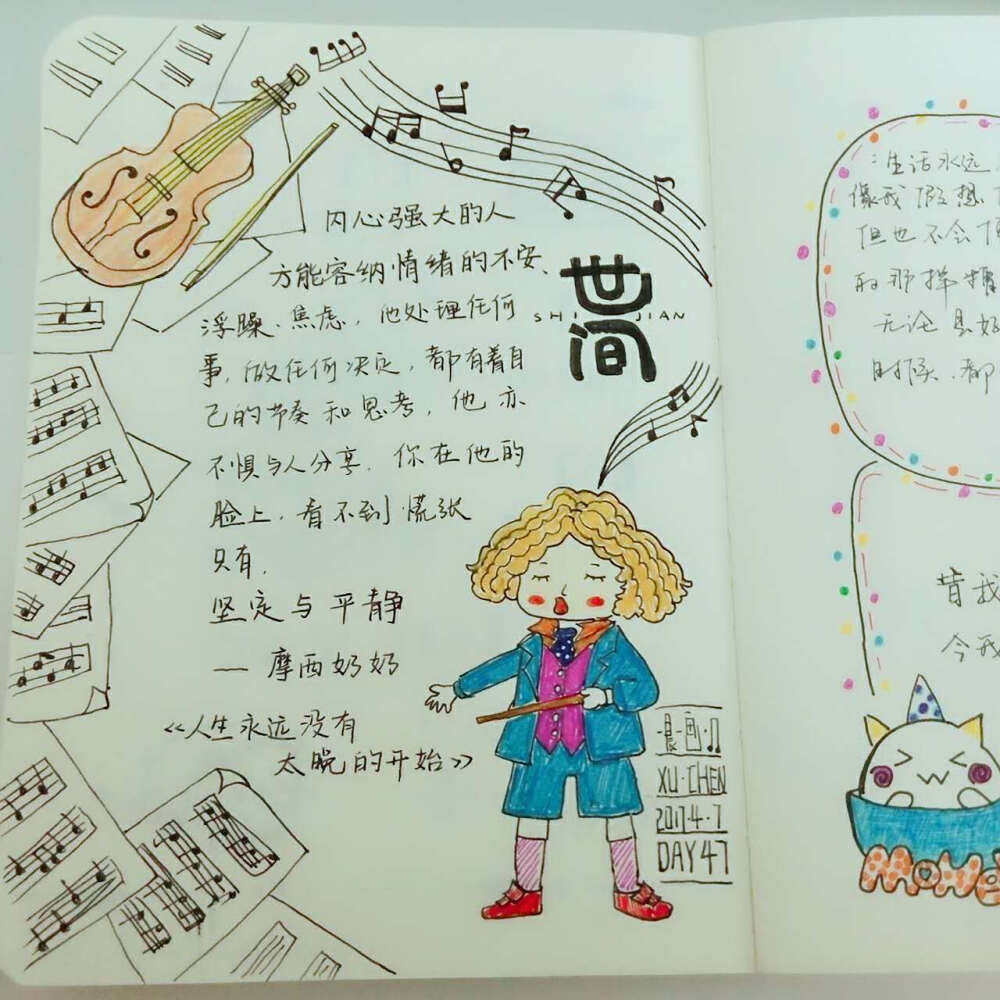 内心强大的人
方能容纳情绪的不安、
浮躁、焦虑，他处理任何
事，做任何决定，都有着自
己的节奏和思考，他亦
不惧与人分享．你在他的
脸上，看不到慌张
只有．
坚定与平静
— 摩西奶奶
《人生永远没有
太晚的开始》
世间
SHI JIAN
晨·画
XU·CHEN
2017·4·7
DAY47
生活永远
像我假想
但也不会
的那样糟
无论是好
时候．都
背我
今我